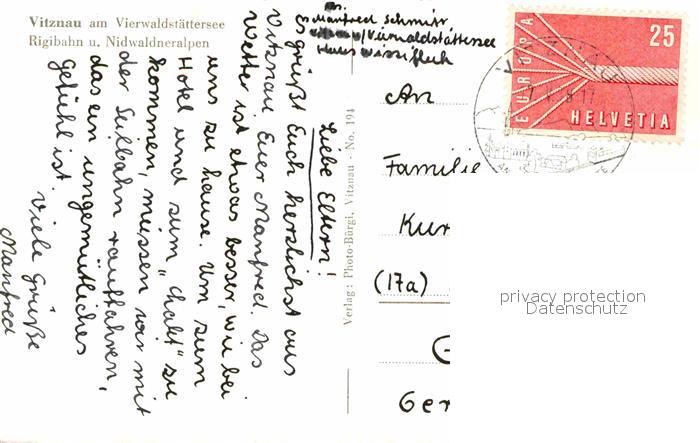 Vitznau am Vierwaldstättersee
Rigibahn u. Nidwaldneralpen
Manfred Schmitt
Vierwaldstättersee
Haus Wissifluh
25
EUROPA
HELVETIA
An
Familie
Kur
(17a)
G
Ger
privacy protection
Datenschutz
Verlag: Photo-Bürgi, Vitznau - No. 194
Liebe Eltern!
Es grüßt Euch herzlichst aus
Vitznau Euer Manfred. Das
Wetter ist etwas besser, wie bei
uns zu hause. Um zum
Hotel und zum „Chalet" zu
kommen, müssen wir mit
der Seilbahn rauffahren,
das ein ungemütliches
gefühl ist.
Viele Grüße
Manfred